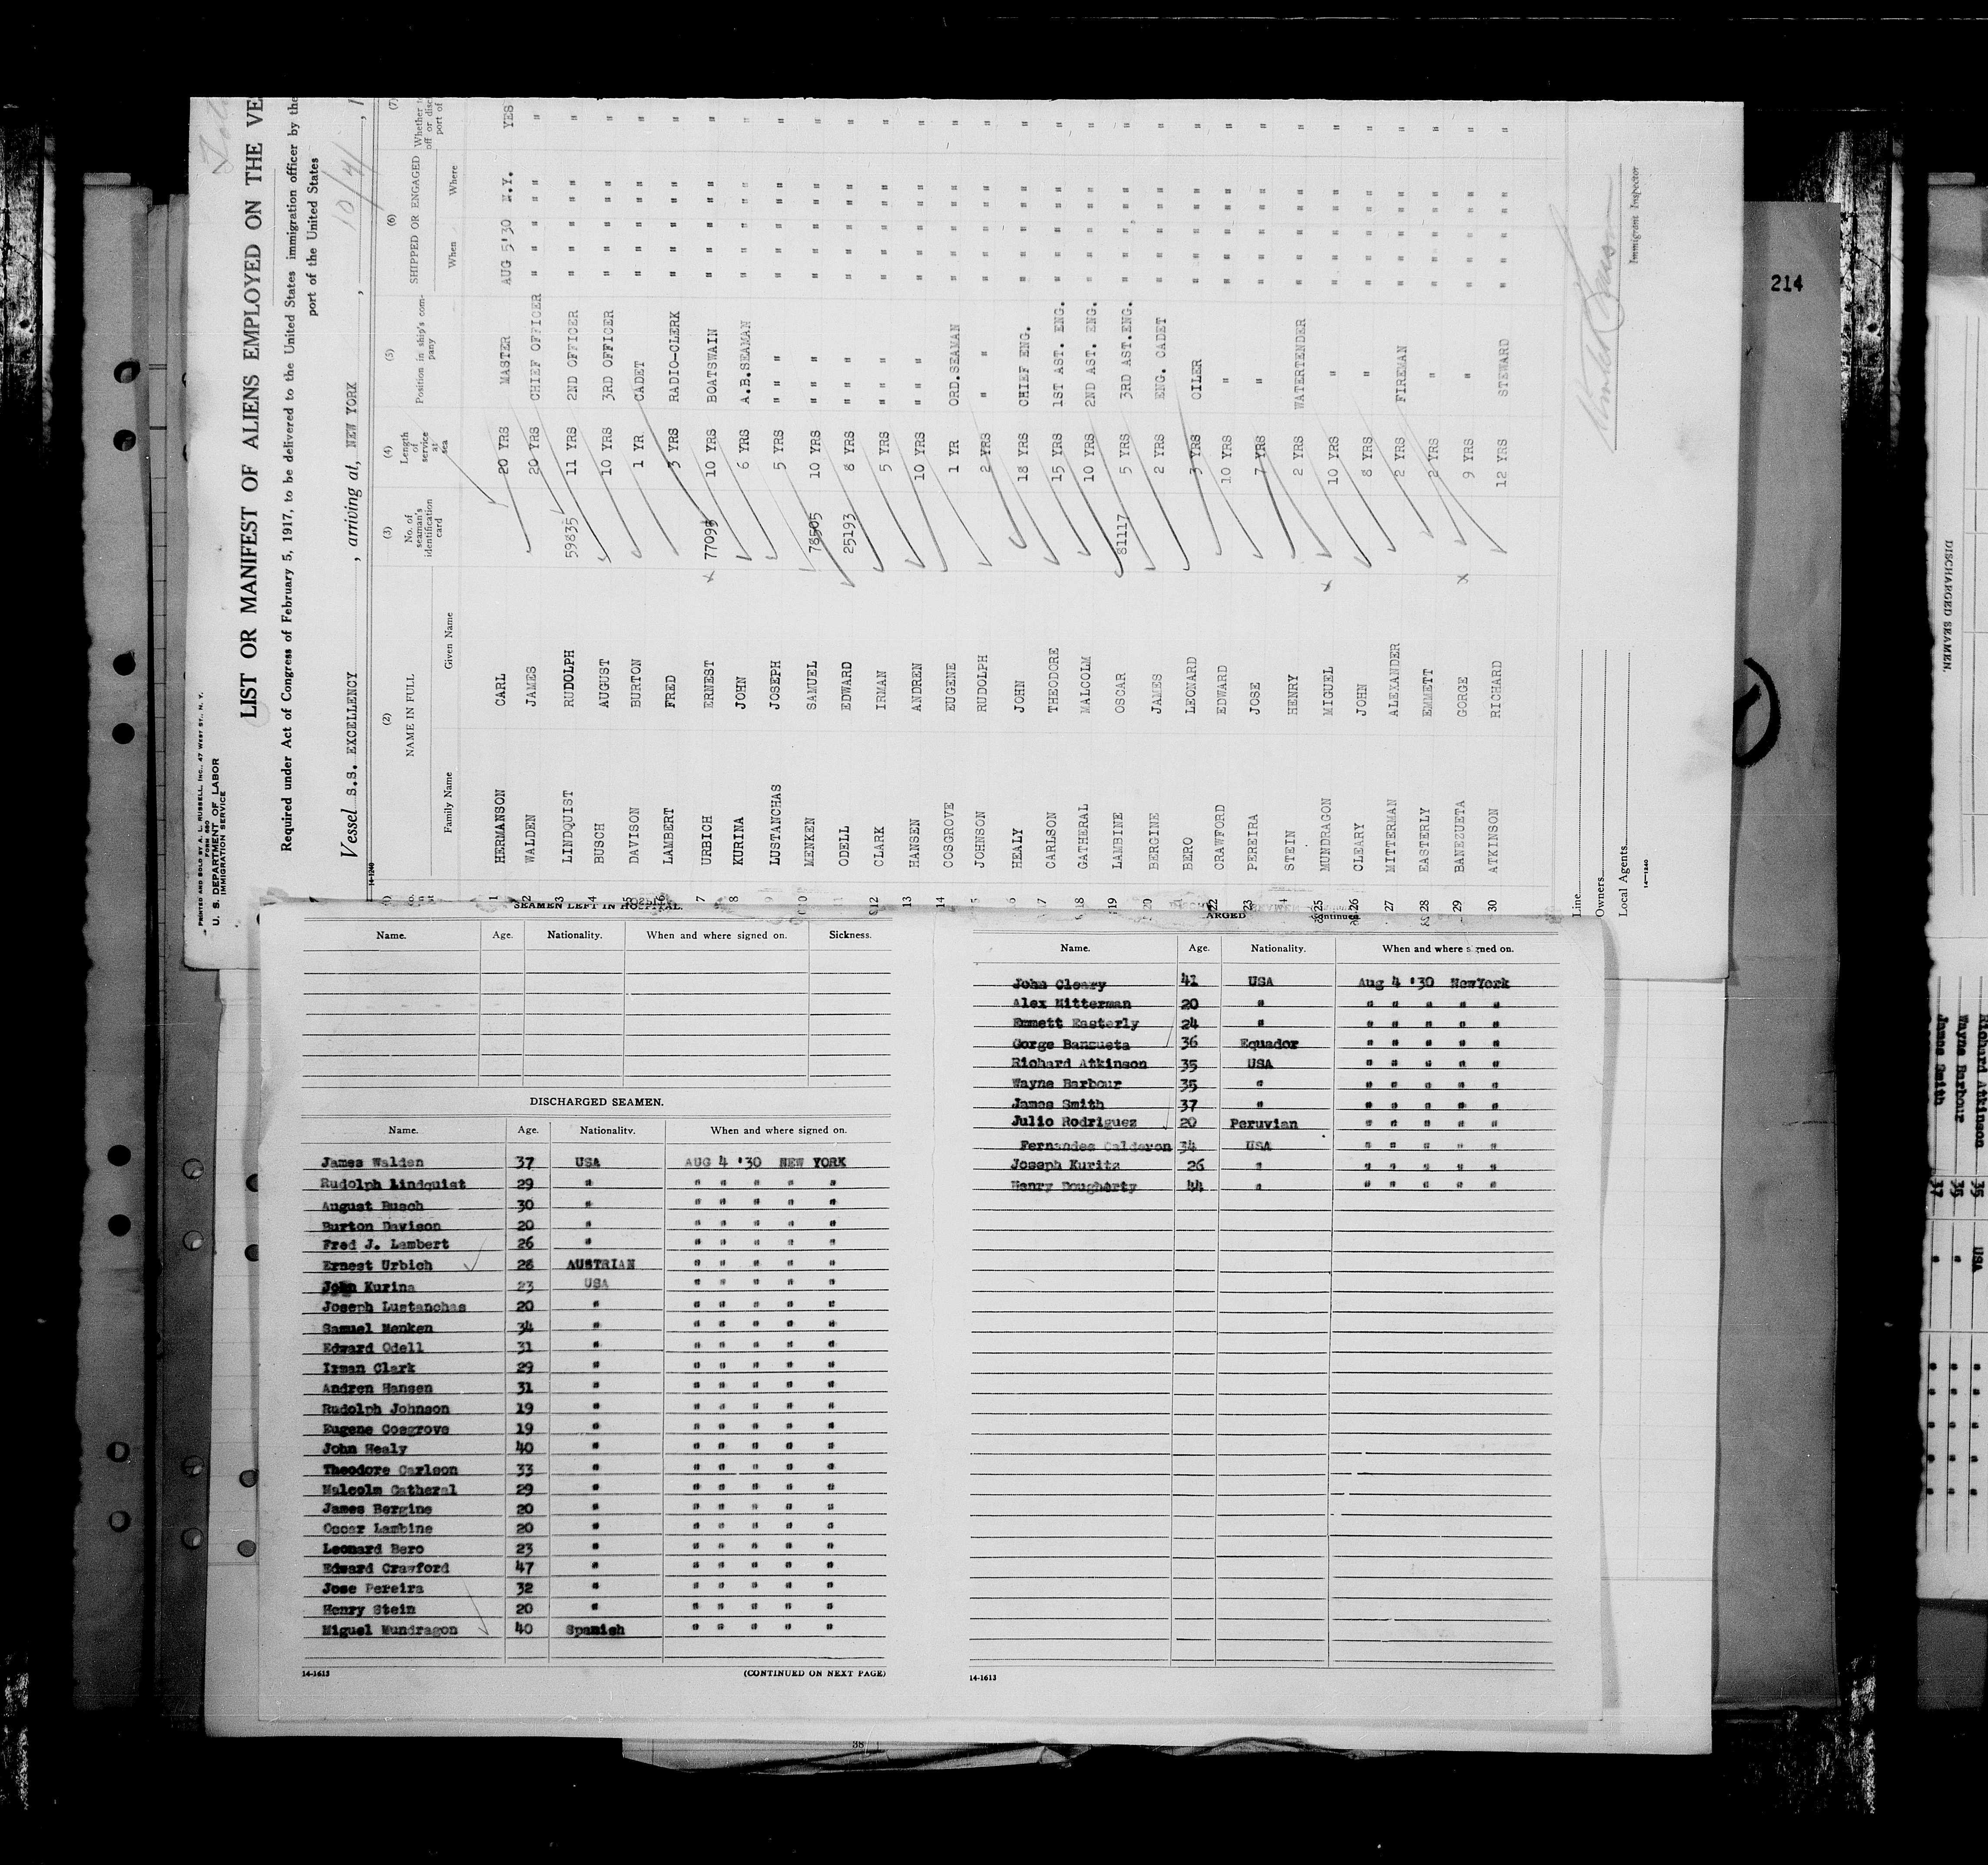 PRINTED AND SOLD BY A. L. RUSSELL, INC., 47 WEST ST., N. Y.
FORM 680
U. S. DEPARTMENT OF LABOR
IMMIGRATION SERVICE
LIST OR MANIFEST OF ALIENS EMPLOYED ON THE VE
Required under Act of Congress of February 5, 1917, to be delivered to the United States immigration officer by the
port of the United States
Vessel S.S. EXCELLENCY , arriving at, NEW YORK , 10/4/ , 1
14-1240
(2) (3) (4) (5) (6) (7)
NAME IN FULL No. of seaman's identification card Length of service at sea Position in ship's company SHIPPED OR ENGAGED Whether
Family Name Given Name When Where off or disc port of
1 HERMANSON CARL 20 YRS MASTER AUG 5'30 N.Y. YES
2 WALDEN JAMES 20 YRS CHIEF OFFICER " " " " "
3 LINDQUIST RUDOLPH 59835 11 YRS 2ND OFFICER " " " " "
4 BUSCH AUGUST 10 YRS 3RD OFFICER " " " " "
5 DAVISON BURTON 1 YR CADET " " " " "
6 LAMBERT FRED 3 YRS RADIO-CLERK " " " " "
7 URBICH ERNEST x 77093 10 YRS BOATSWAIN " " " " "
8 KURINA JOHN 6 YRS A.B.SEAMAN " " " " "
9 LUSTANCHAS JOSEPH 5 YRS " " " " " " "
10 MENKEN SAMUEL 78505 10 YRS " " " " " " "
11 ODELL EDWARD 25193 8 YRS " " " " " " "
12 CLARK IRMAN 5 YRS " " " " " " "
13 HANSEN ANDREN 10 YRS " " " " " " "
14 COSGROVE EUGENE 1 YR ORD.SEAMAN " " " " "
5 JOHNSON RUDOLPH 2 YRS " " " " " "
6 HEALY JOHN 18 YRS CHIEF ENG. " " " " "
7 CARLSON THEODORE 15 YRS 1ST AST. ENG. " " " " "
18 GATHERAL MALCOLM 10 YRS 2ND AST. ENG. " " " " "
19 LAMBINE OSCAR 81117 5 YRS 3RD AST.ENG. " " " " "
20 BERGINE JAMES 2 YRS ENG. CADET " " " " "
BERO LEONARD 3 YRS OILER " " " " "
22 CRAWFORD EDWARD 10 YRS " " " " " "
23 PEREIRA JOSE 7 YRS " " " " " "
4 STEIN HENRY 2 YRS WATERTENDER " " " " "
25 MUNDRAGON MIGUEL x 10 YRS " " " " " "
26 CLEARY JOHN 8 YRS " " " " " "
27 MITTERMAN ALEXANDER 2 YRS FIREMAN " " " " "
28 EASTERLY EMMETT 2 YRS " " " " " "
29 BANEZUETA GORGE x 9 YRS " " " " " "
30 ATKINSON RICHARD 12 YRS STEWARD " " " " "
Line
Owners
Local Agents
14-1240
Immigrant Inspector
214
SEAMEN LEFT IN HOSPITAL.
Name. Age. Nationality. When and where signed on. Sickness.
DISCHARGED SEAMEN.
Name. Age. Nationality. When and where signed on.
James Walden 37 USA AUG 4 '30 NEW YORK
Rudolph Lindquist 29 " " " " " "
August Busch 30 " " " " " "
Burton Davison 20 " " " " " "
Fred J. Lambert 26 " " " " " "
Ernest Urbich 26 AUSTRIAN " " " " "
John Kurina 23 USA " " " " "
Joseph Lustanchas 20 " " " " " "
Samuel Menken 34 " " " " " "
Edward Odell 31 " " " " " "
Irman Clark 29 " " " " " "
Andren Hansen 31 " " " " " "
Rudolph Johnson 19 " " " " " "
Eugene Cosgrove 19 " " " " " "
John Healy 40 " " " " " "
Theodore Carlson 33 " " " " " "
Malcolm Gatheral 29 " " " " " "
James Bergine 20 " " " " " "
Oscar Lambine 20 " " " " " "
Leonard Bero 23 " " " " " "
Edward Crawford 47 " " " " " "
Jose Pereira 32 " " " " " "
Henry Stein 20 " " " " " "
Miguel Mundragon 40 Spanish " " " " "
14-1613 (CONTINUED ON NEXT PAGE)
ARGED continued
Name. Age. Nationality. When and where signed on.
John Cleary 41 USA Aug 4 '30 NewYork
Alex Mitterman 20 " " " " " "
Emmett Easterly 24 " " " " " "
Gorge Banzueta 36 Equador " " " " "
Richard Atkinson 35 USA " " " " "
Wayne Barbour 35 " " " " " "
James Smith 37 " " " " " "
Julio Rodriguez 20 Peruvian " " " " "
Fernandes Calderon 34 USA " " " " "
Joseph Kuritz 26 " " " " " "
Henry Dougherty 44 " " " " " "
14-1613
38
DISCHARGED SEAMEN.
Richard Atkinson 35 USA
Wayne Barbour 35 "
James Smith 37 "